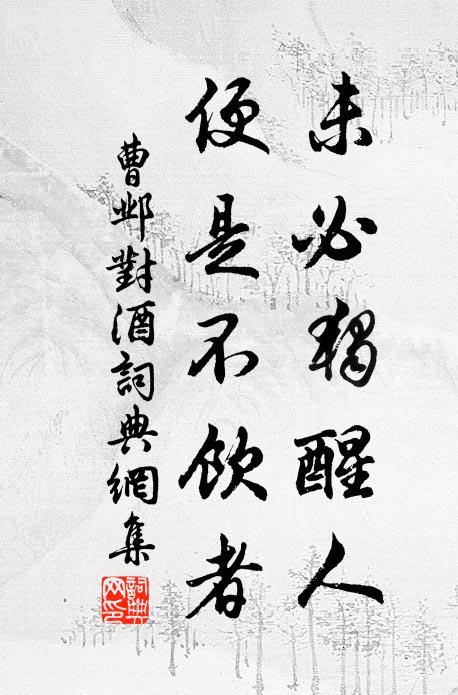 未必獨醒人
便是不飲者
曹邺對酒詞典網集
詞典
网印